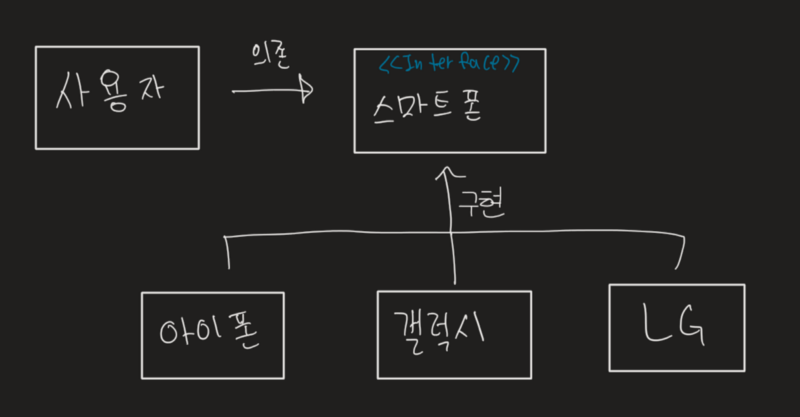 사용자
의존
<<Interface>>
스마트폰
구현
아이폰
갤럭시
LG